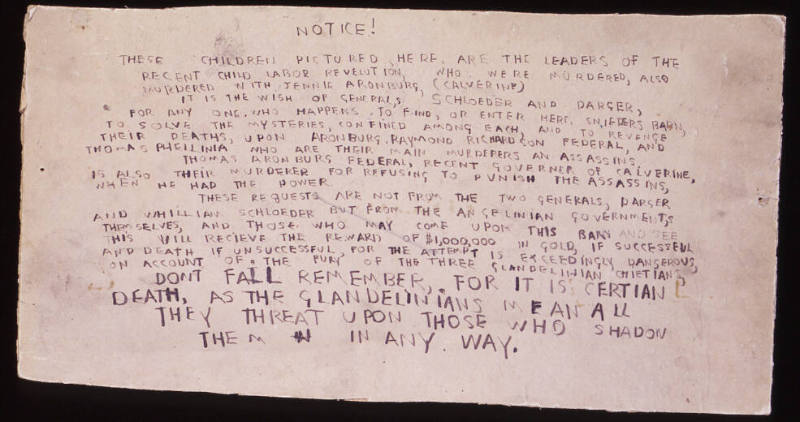 NOTICE!
THESE CHILDREN PICTURED HERE. ARE THE LEADERS OF THE
RECENT CHILD LABOR REVELUTION, WHO WERE MURDERED, ALSO
MURDERED WITH JENNIE ARONBURG, (CALVERINE)
IT IS THE WISH OF GENERALS, SCHLOEDER AND DARGER,
FOR ANY ONE, WHO HAPPENS TO FIND, OR ENTER HERE. SNIEDERS BARN,
TO SOLVE THE MYSTERIES, CONFINED AMONG EACH, AND TO REVENGE
THEIR DEATHS, UPON ARONBURG, RAYMOND RICHARDSON FEDERAL, AND
THOMAS PHELLINIA WHO ARE THEIR MAIN MURDERERS AN ASSASSINS,
THOMAS ARONBURG FEDERAL, RECENT GOVERNER OF CALVERINE,
IS ALSO THEIR MURDERER FOR REFUSING TO PUNISH THE ASSASSINS,
WHEN HE HAD THE POWER
THESE REQUESTS ARE NOT FROM THE TWO GENERALS, DARGER
AND WHILLIAM SCHLOEDER BUT FROM THE ANGELINIAN GOVERNMENTS
THEMSELVES, AND THOSE WHO MAY COME UPON THIS BARN AND SEE
THIS WILL RECIEVE THE REWARD OF $1,000,000 IN GOLD, IF SUCCESSFUL
AND DEATH IF UNSUCCESSFUL, FOR THE ATTEMPT IS EXCEEDINGLY DANGEROUS,
ON ACCOUNT OF THE FURY OF THE THREE GLANDELINIAN CHIETIANS,
DONT FALL REMEMBER, FOR IT IS CERTIAN
DEATH, AS THE GLANDELINIANS MEAN ALL
THEY THREAT UPON THOSE WHO SHADON
THEM IN ANY WAY.